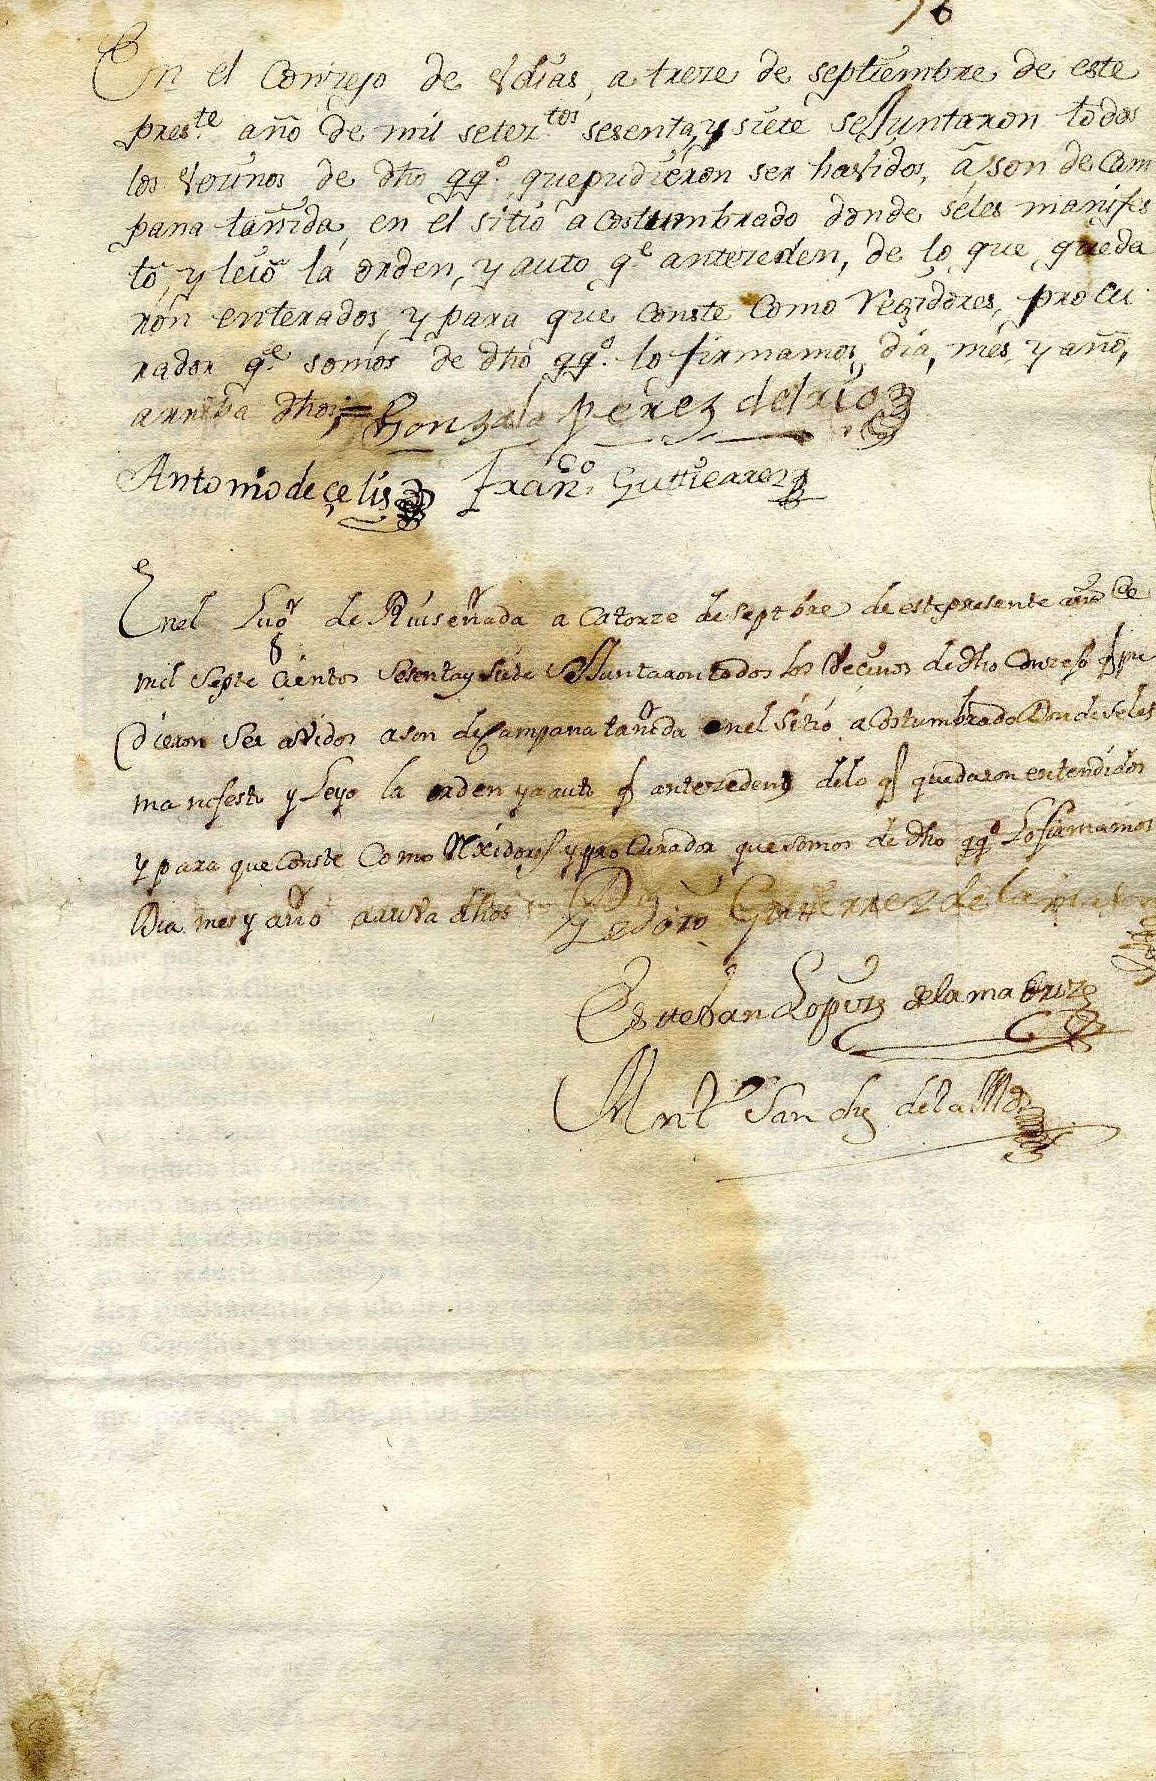 76
En el Conzejo de Vdias, a treze de septiembre de este
pres.te año de mil setez.tos sesenta, y siete se Juntaron todos
los vezinos de dho qq.o que pudieron ser havidos, á son de Cam
pana tañida, en el sitio a Costumbrado donde seles manifes
tó, y leió la orden, y auto q.e antezeden, de lo que queda
ron enterados, y para que Conste Como Regidores, procu
rador q.e somos de dho qq.o lo firmamos, dia, mes y año,
arriba dhos;= Gonzalo perez del rio
Antonio de çelis Fran.co Guttierrez
Enel Lugr de Ruiseñada a Catorze de septbre de este presente año de
mil septe cientos sesenta y siete se Juntaron todos los Vecinos de dho Conzejo q pu
dieron ser avidos a son de Campana tañida enel sitio acostumbrado Donde seles
manifesto y Leyo la orden y aauto q antezeden delo q quedaron entendidos
y para que Conste Como Rexidores y procurador que somos de dho qq.o Lo firmamos
Dia mes y año arriva dhos = Pedro Gutierrez de la
Esteban Lopez dela madriz
Ant.o Sanchz dela